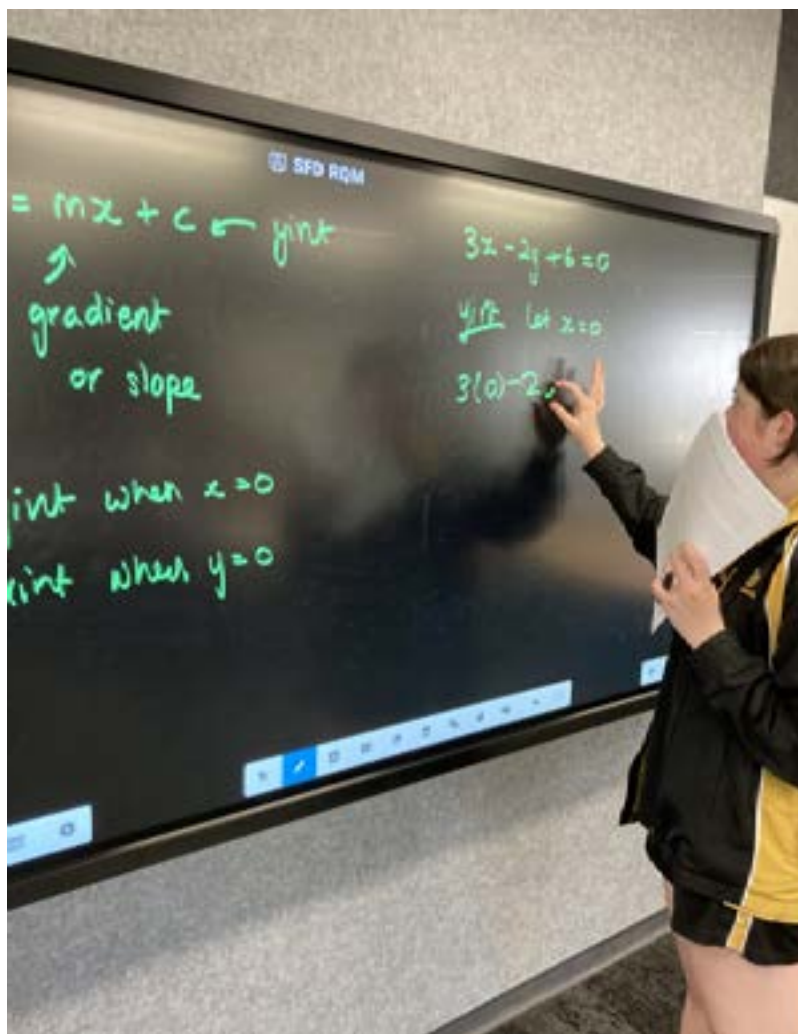 SFD RQM
= mx + c ← yint
↑
gradient
or slope
yint when x=0
xint when y=0
3x-2y+6=0
yint let x=0
3(0)-2